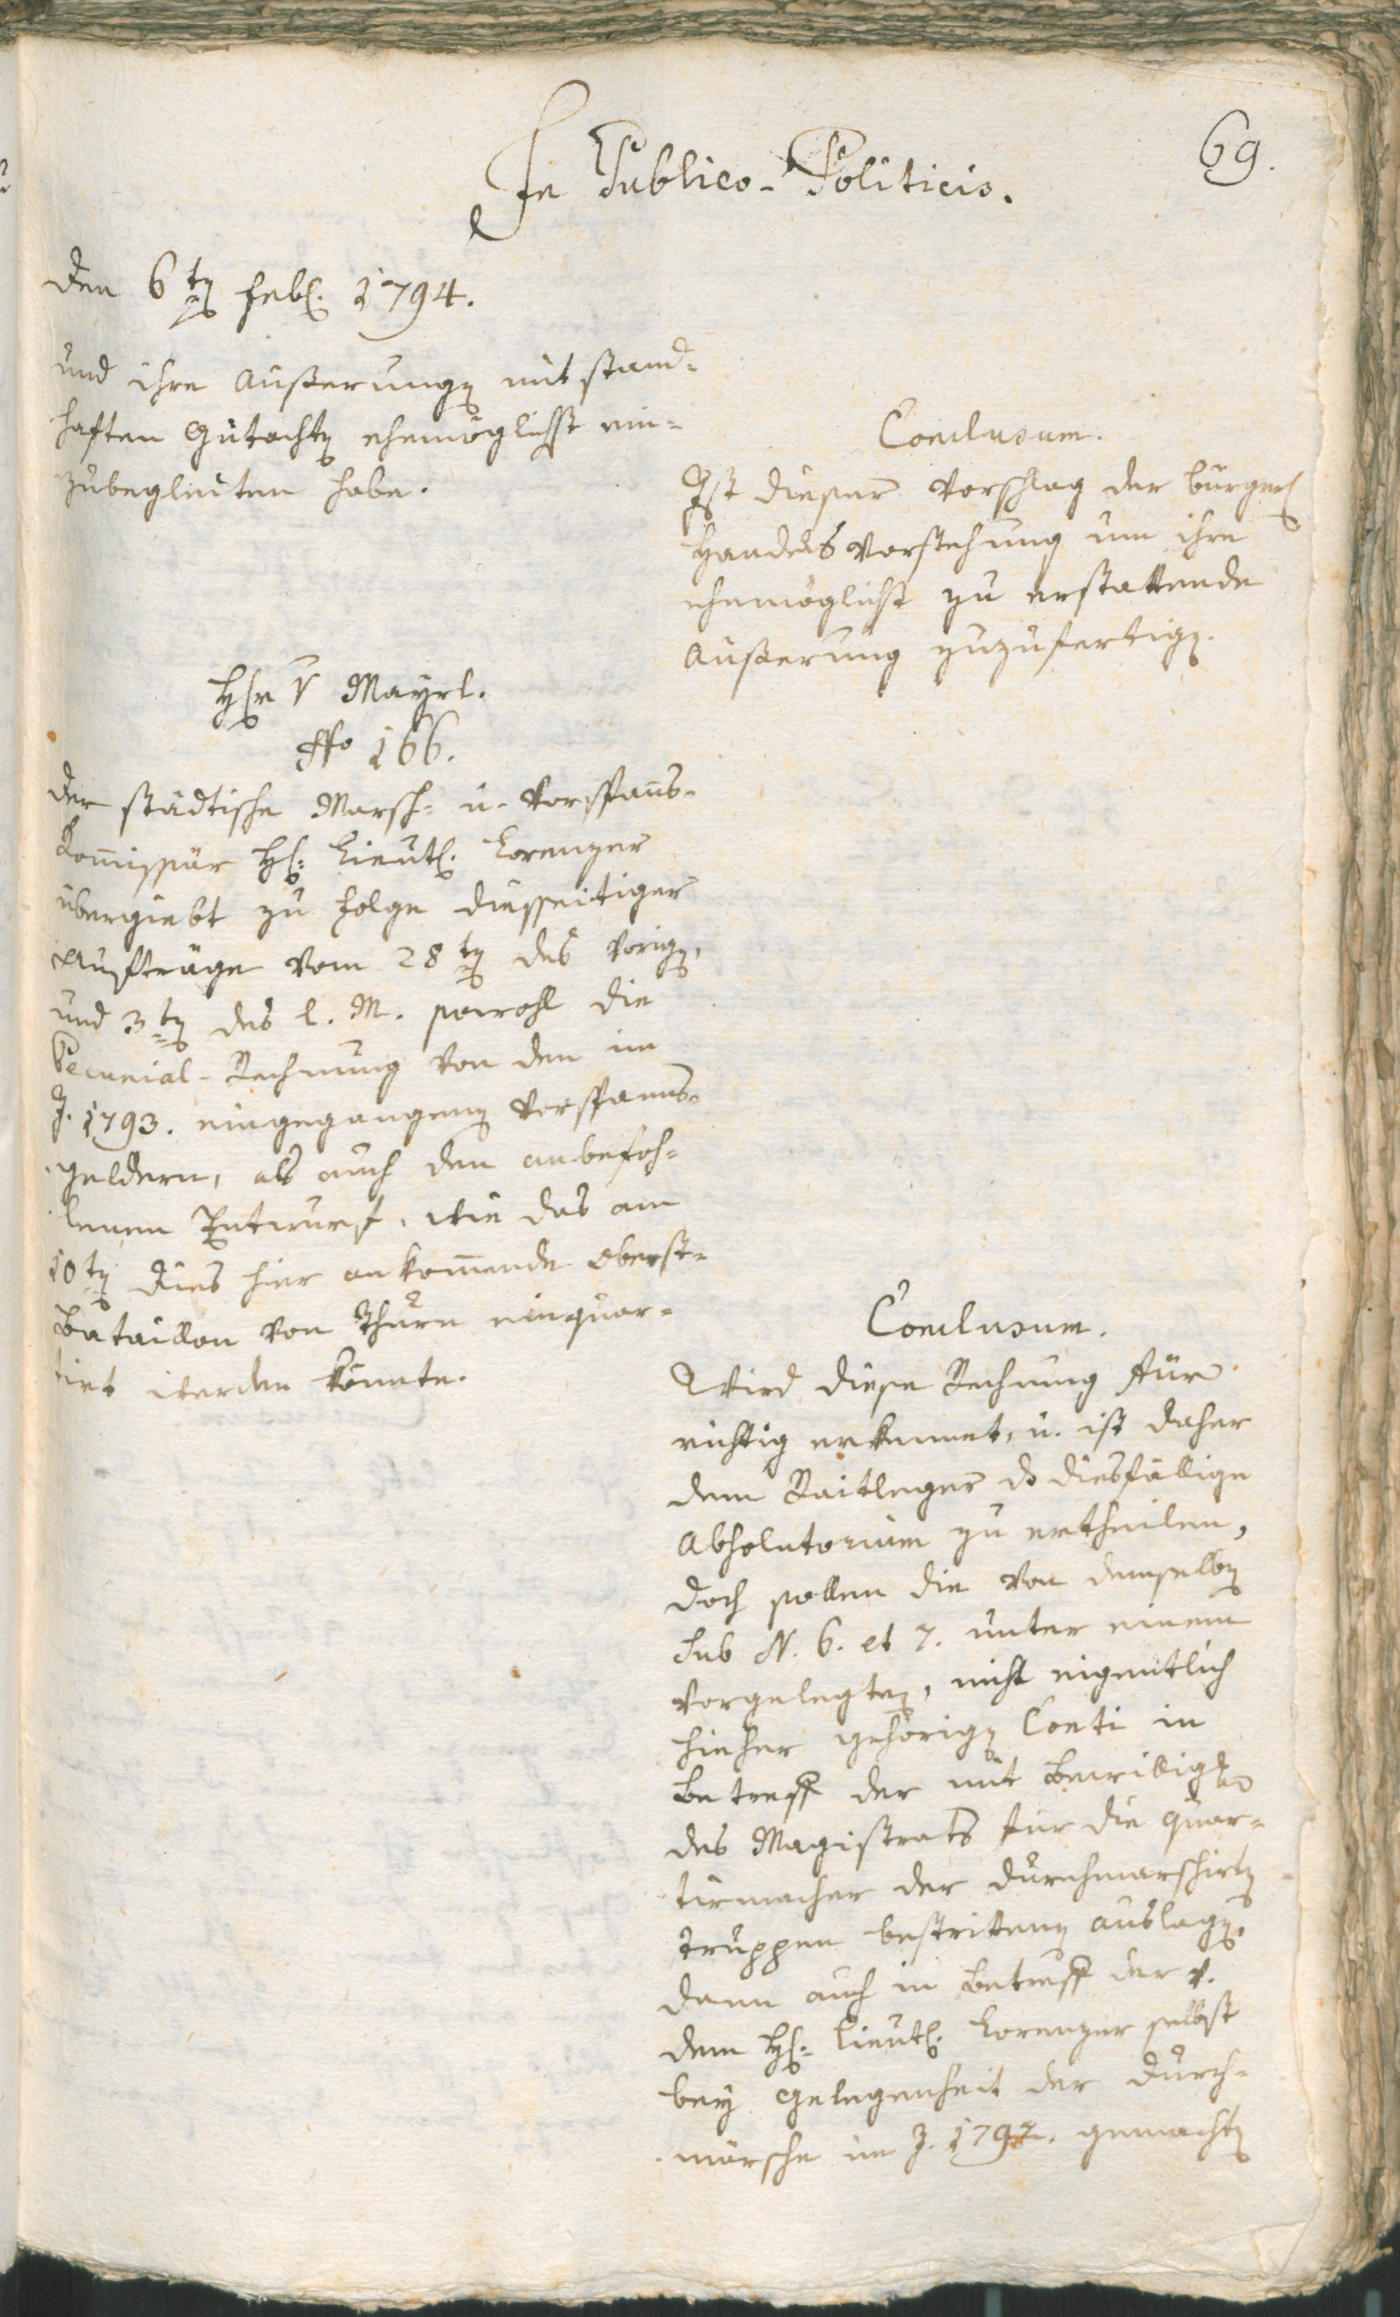 69.
In Publico-Politicis.
den 6t: Feb: 1794.
und ihre Äußerung mit stand-
haften Gutacht ehemöglichst ein-
zubegleiten habe.
Conclusum.
Ist dieser Vorschlag der bürgerl
Handels Vorstehung um ihre
ehemöglichst zu erstattende
Äußerung zuzufertig.
H v Mayrl.
No 166.
Der städtische Marsch- u. Vorspans-
Komissär H: Lieut: Lorenzer
übergiebt zu Folge diesseitiger
Aufträge vom 28t des vorig,
und 3t des l. M. sowohl die
Pecunial-Rechnung von den im
J. 1793. eingegangen Vorspanns-
geldern, als auch den anbefoh-
lenen Entwurf, wie das am
10t dies hier ankommende Oberst-
Bataillon von Thurn einquar-
tirt werden könnte.
Conclusum.
Wird diese Rechnung für
richtig erkennet, u. ist daher
dem Raitleger d diesfällige
Absolutorium zu ertheilen,
doch sollen die von demselb
sub N. 6. et 7. unter einem
vorgelegten, nicht eigentlich
hieher gehörig Conti in
Betreff der mit Bewillig
des Magistrats für die Quar-
tirmacher der durchmarschirt
Truppen bestritten Auslag,
dann auch in Betreff der v.
dem H: Lieut: Lorenzer selbst
bey Gelegenheit der Durch-
märsche im J. 1792. gemacht